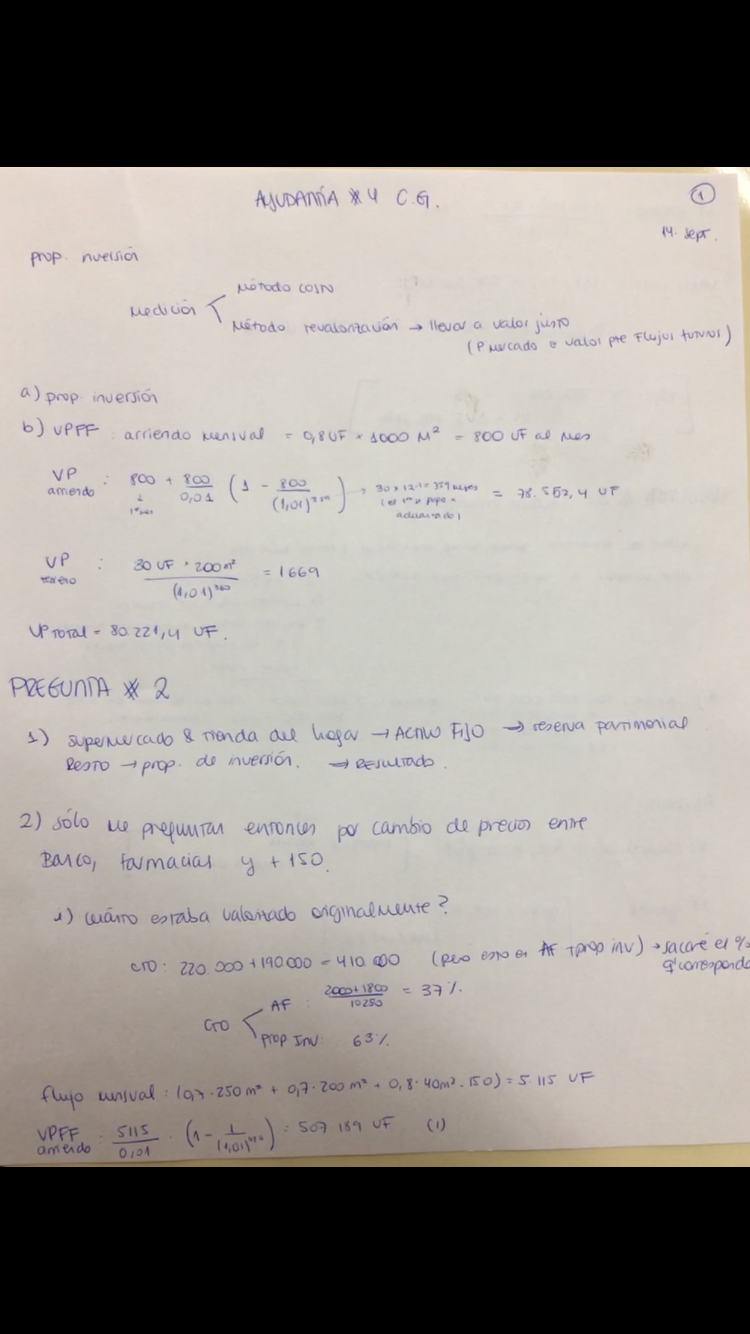 AYUDANTÍA #4 C.G.
1
14. sept.
prop. inversión
Medición
Método costo
Método revalorización → llevar a valor justo
(P mercado o valor pte Flujos futuros)
a) prop. inversión
b) VPFF : arriendo mensual = 0,8UF * 1000 M² = 800 UF al mes
VP arriendo : 800 + 800/0,01 (1 - 800/(1,01)³⁵⁹) → 30 x 12-1 = 359 meses = 78.552,4 UF
1º mes
(el 1º se paga x
adelantado)
VP terreno : 30 UF * 200m²/(1,01)³⁶⁰ = 1669
VP TOTAL = 80.221,4 UF.
PREGUNTA # 2
1) supermercado & tienda del hogar → ACTIVO FIJO → reserva patrimonial
Resto → prop. de inversión. → RESULTADO.
2) sólo me preguntan entonces por cambio de precios entre
Banco, farmacias y + 150.
1) cuánto estaba valorizado originalmente?
CTO : 220.000 + 190000 = 410.000 (pero esto es AF + prop inv) → sacaré el %
q' corresponda
CTO
AF : 2000+1800/10250 = 37%.
prop Inv: 63%
flujo mensual : (0,7 . 250m² + 0,7 . 200m² + 0,8 . 40m² . 150) = 5.115 UF
VPFF arriendo : 5115/0,01 . (1 - 1/(1,01)) = 507 189 UF (1)